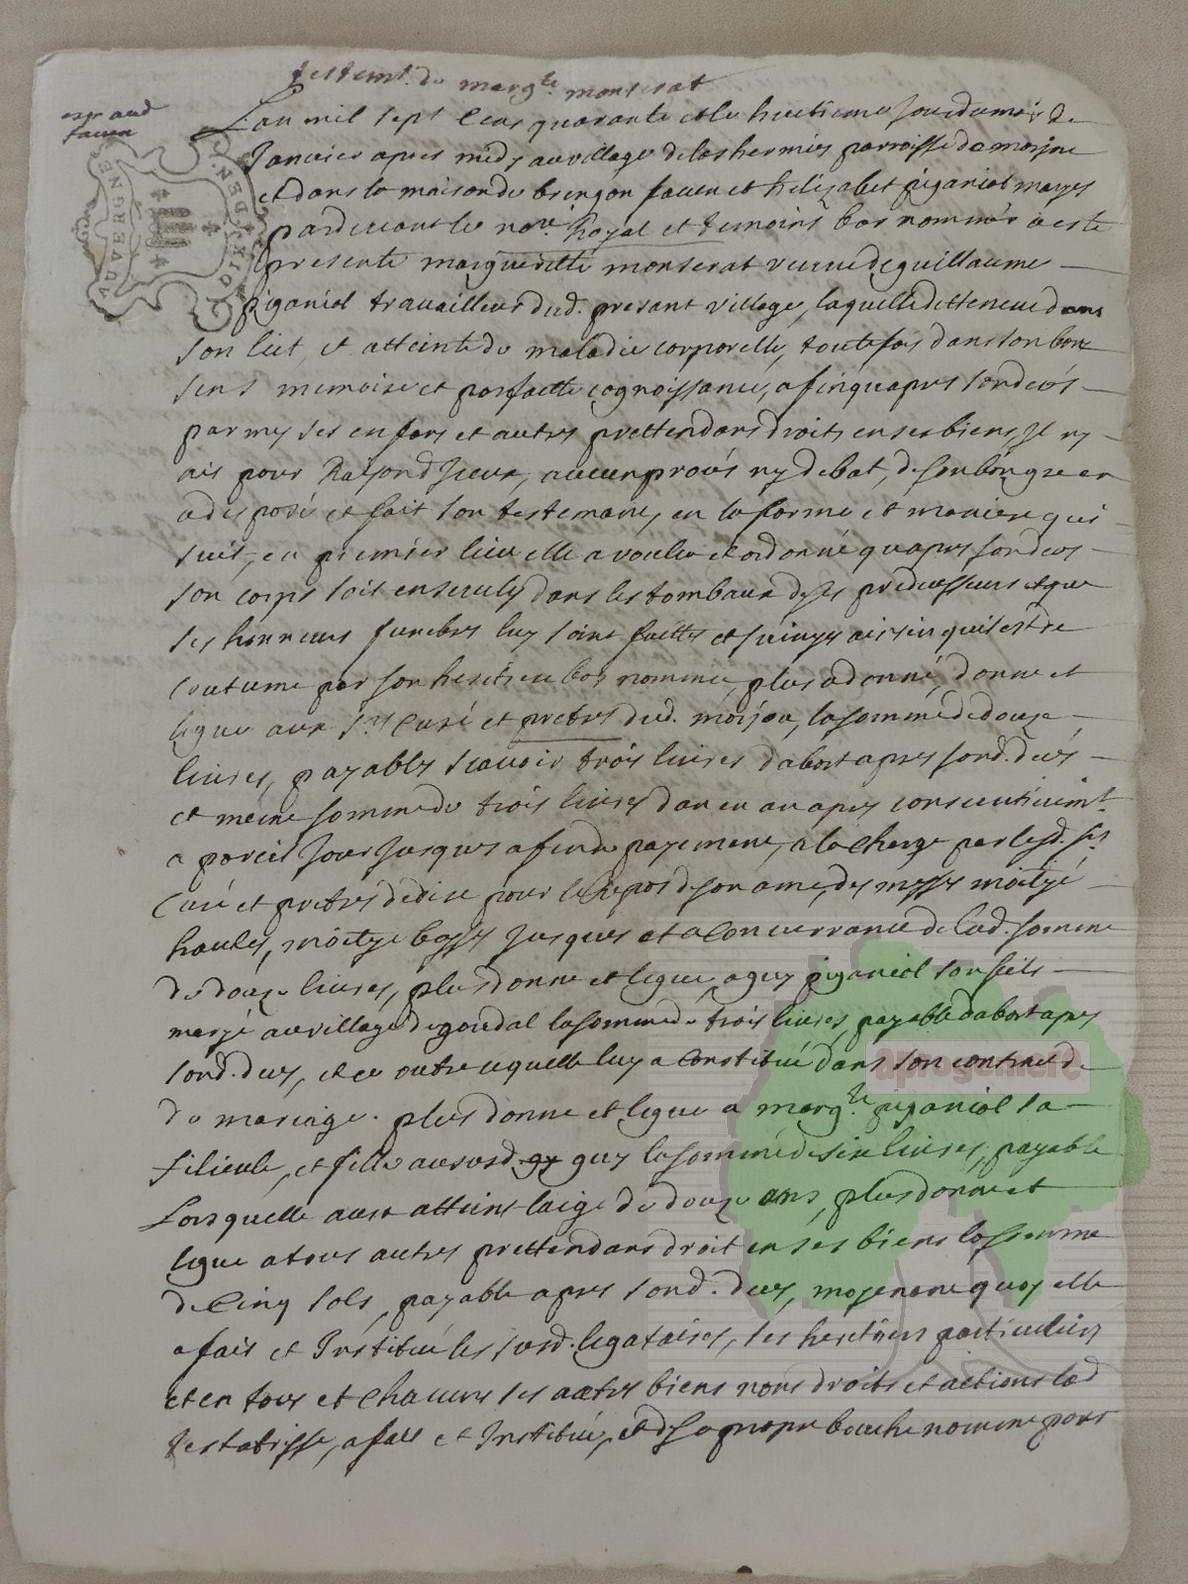 testemt. de margte. monserat
expe aud
faven
AUVERGNE
L'an mil sept cens quarante et le huitieme jour du mois de
Janvier apres midy au village de las hermies parroisse de moijou
et dans la maison de brengon faven et helizabet piganiol maryes
pardevant le nore. Royal et temoins bas nommés a esté
presente margueritte monserat veuve de guillaume
piganiol travailleur dud. presant village, laquelle dettenue dans
son lict, et atteinte de maladie corporelle, toutefois dans son bon
sens memoire et parfaitte cognoissance, afin quapres son deces
parmy ses enfans et autres prettendans droits en ses biens Il ny
ait pour Raison d'Iceux, aucun procés ny debat, de son bon gre en
a disposé et fait son testement, en la forme et maniere qui
suit, en premier lieu elle a voulu et ordonné quapres son deces
son corps soit ensevely dans les tombaux de ses predecesseurs et que
ses honneurs funebres luy soint faittes et suivyes ainsin quil est de
coutume par son heritiere bas nommée, plus a donné, donne et
legue aux srs Curé et pretres dud. moijou, la somme de douze
livres, payables scavoir trois livres d'abort apres sond. deces
et meme somme de trois livres dan en an apres consecutivemt.
a pareil jour jusques a fin de payement, a la charge par lesd. srs
Curé et pretres de dire pour le Repos de son ame, des messes moitye
hautes, moitye basses jusques et a concurrance de lad. somme
de douze livres, plus donne et legue a guy piganiol son fils
maryé au village de goudal la somme de trois livres, payable dabort apres
sond. deces, et ce outre ce quelle luy a constitué dans son contract de
de mariage. plus donne et legue a margte. piganiol sa
filieule, et fille au susd. gy guy la somme de six livres, payable
Lorsquelle aura atteint laige de douze ans, plus donne et
legue a tous autres prettendans droit en ses biens la somme
de Cinq sols, payable apres sond. deces, moyenant quoy elle
a fait et Institué les susd. legataires, ses heritiers particuliers
et en tous et chacuns ses autres biens noms droits et actions lad
testatrisse, a fait et Institué, et de sa propre bouche nomme pour
aprogemere